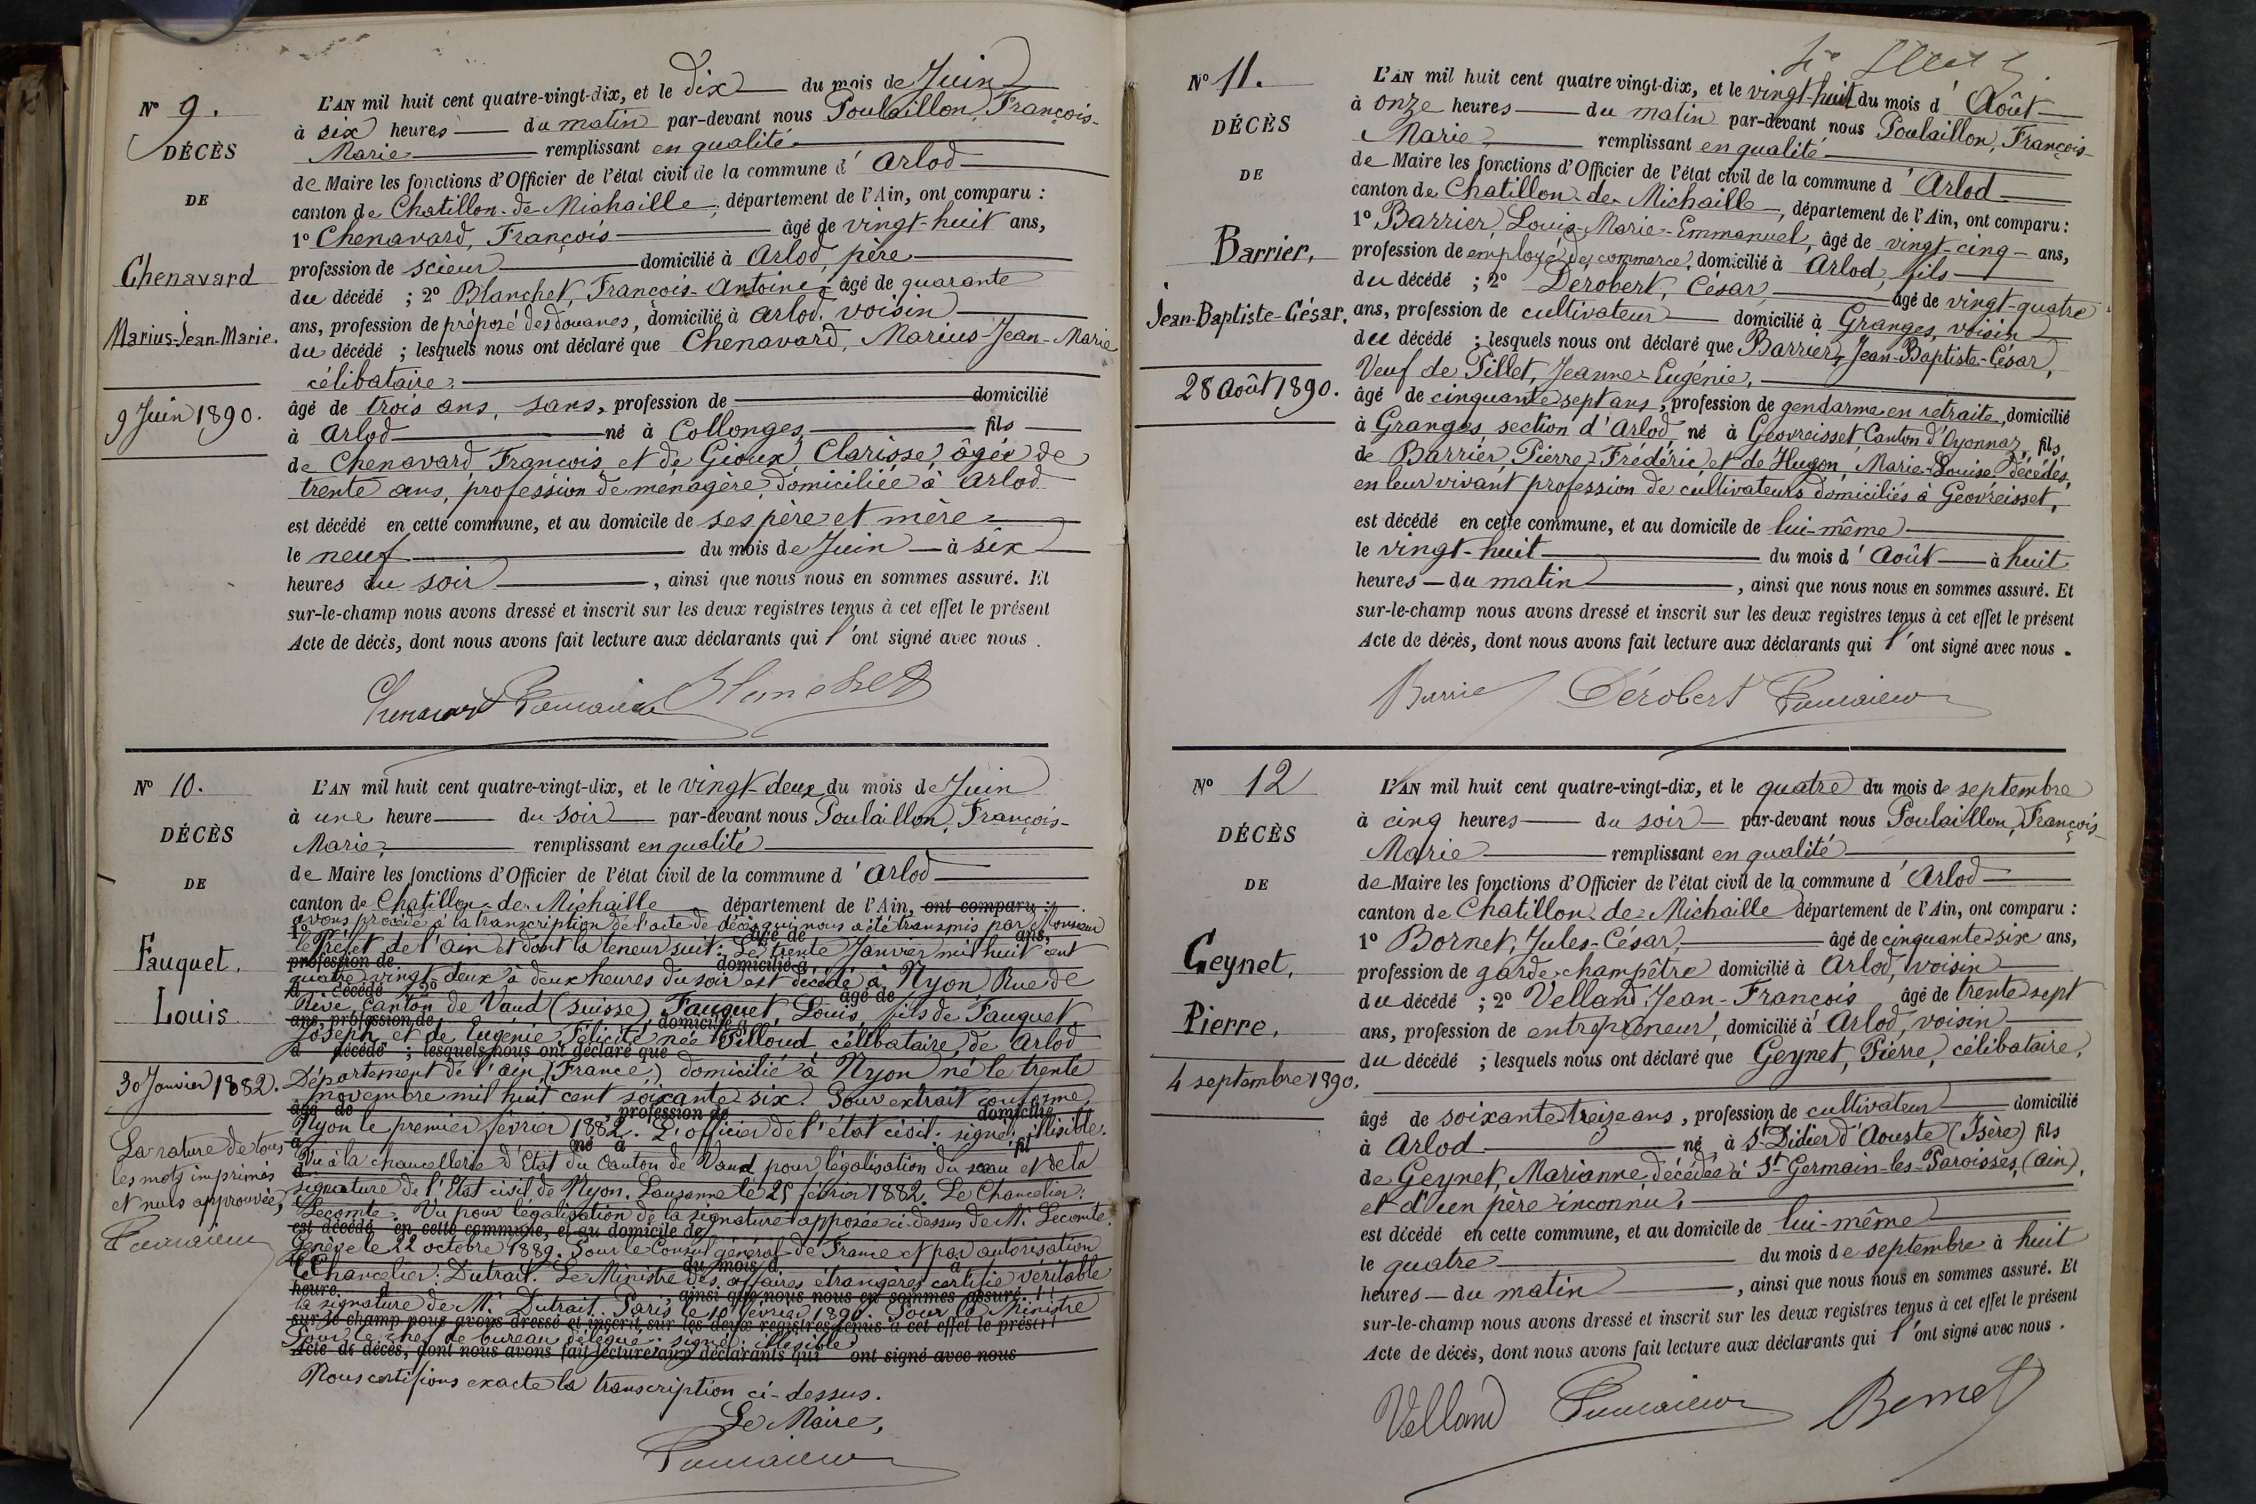 N° 9.
DÉCÈS
DE
Chenavard
Marius-Jean-Marie.
9 Juin 1890.
L'AN mil huit cent quatre-vingt-dix, et le dix du mois de Juin
à six heures du matin par-devant nous Poulaillon, François-
Marie remplissant en qualité
de Maire les fonctions d'Officier de l'état civil de la commune d'Arlod
canton de Chatillon-de-Michaille, département de l'Ain, ont comparu :
1° Chenavard, François âgé de vingt-huit ans,
profession de scieur domicilié à Arlod, père
du décédé ; 2° Blanchet, François-Antoine âgé de quarante
ans, profession de préposé des douanes, domicilié à Arlod, voisin
du décédé ; lesquels nous ont déclaré que Chenavard, Marius-Jean-Marie
célibataire,
âgé de trois ans, sans, profession de domicilié
à Arlod né à Collonges fils
de Chenavard, François et de Gioux, Clarisse, âgée de
trente ans, profession de ménagère, domiciliée à Arlod
est décédé en cette commune, et au domicile de ses père et mère
le neuf du mois de Juin à six
heures du soir, ainsi que nous nous en sommes assuré. Et
sur-le-champ nous avons dressé et inscrit sur les deux registres tenus à cet effet le présent
Acte de décès, dont nous avons fait lecture aux déclarants qui l'ont signé avec nous.
Chenavard Poulaillon Blanchet
N° 10.
DÉCÈS
DE
Fauquet,
Louis
30 Janvier 1882.
La rature de tous
les mots imprimés
et nuls approuvée,
Poulaillon
L'AN mil huit cent quatre-vingt-dix, et le vingt-deux du mois de Juin
à une heure du soir par-devant nous Poulaillon, François-
Marie, remplissant en qualité
de Maire les fonctions d'Officier de l'état civil de la commune d'Arlod
canton de Chatillon-de-Michaille département de l'Ain, ont comparu :
avons procédé à la transcription de l'acte de décès qui nous a été transmis par Monsieur
1° âgé de ans,
le Préfet de l'ain et dont la teneur suit : Le trente Janvier mil huit cent
profession de domicilié à
quatre-vingt-deux à deux heures du soir est décédé à Nyon Rue de
d décédé ; 2° âgé de
Rive Canton de Vaud (Suisse) Fauquet, Louis, fils de Fauquet
ans, profession de domicilié à
Joseph et de Eugénie Félicité née Pilloud célibataire, de Arlod
d décédé ; lesquels nous ont déclaré que
Département de l'ain, (France) domicilié à Nyon né le trente
novembre mil huit cent soixante six. Pour extrait conforme,
âgé de profession de domicilié
Nyon le premier février 1882. L'officier de l'état civil : signé : illisible.
à né à fil
Vu à la chancellerie d'Etat du Canton de Vaud pour légalisation du sceau et de la
d
signature de l'Etat civil de Nyon. Lausanne le 25 février 1882. Le Chancelier :
Lecomte. Vu pour légalisation de la signature apposée ci-dessus de M. Lecomte.
est décédé en cette commune, et au domicile de
Genève le 22 octobre 1889. Pour le Consul général de France et par autorisation
le du mois d à
Le Chancelier : Dutrait. Le Ministre des affaires étrangères certifie véritable
heure d , ainsi que nous nous en sommes assuré. Et
la signature de M. Dutrait. Paris le 10 février 1890. Pour le Ministre
sur-le-champ nous avons dressé et inscrit sur les deux registres tenus à cet effet le présent
Pour le chef de bureau délégué : signé : illisible
Acte de décès, dont nous avons fait lecture aux déclarants qui ont signé avec nous
Nous certifions exacte la transcription ci-dessus.
Le Maire,
Poulaillon
N° 11.
DÉCÈS
DE
Barrier,
Jean-Baptiste-César.
28 Août 1890.
L'AN mil huit cent quatre vingt-dix, et le vingt-huit du mois d'Août
à onze heures du matin par-devant nous Poulaillon, François-
Marie remplissant en qualité
de Maire les fonctions d'Officier de l'état civil de la commune d'Arlod
canton de Chatillon-de-Michaille, département de l'Ain, ont comparu :
1° Barrier, Louis-Marie-Emmanuel, âgé de vingt-cinq ans,
profession de employé de commerce, domicilié à Arlod, fils
du décédé ; 2° Dérobert, César, âgé de vingt-quatre
ans, profession de cultivateur domicilié à Granges, voisin
du décédé ; lesquels nous ont déclaré que Barrier, Jean-Baptiste-César,
Veuf de Pillet, Jeanne-Eugénie,
âgé de cinquante sept ans, profession de gendarme en retraite, domicilié
à Granges, section d'Arlod, né à Géovreisset, Canton d'Oyonnaz, fils
de Barrier, Pierre-Frédéric, et de Hugon, Marie-Louise décédés,
en leur vivant profession de cultivateurs domiciliés à Géovreisset,
est décédé en cette commune, et au domicile de lui-même
le vingt-huit du mois d'Août à huit
heures du matin, ainsi que nous nous en sommes assuré. Et
sur-le-champ nous avons dressé et inscrit sur les deux registres tenus à cet effet le présent
Acte de décès, dont nous avons fait lecture aux déclarants qui l'ont signé avec nous.
Barrier Dérobert Poulaillon
N° 12
DÉCÈS
DE
Geynet,
Pierre,
4 septembre 1890.
L'AN mil huit cent quatre-vingt-dix, et le quatre du mois de septembre
à cinq heures du soir par-devant nous Poulaillon, François-
Marie remplissant en qualité
de Maire les fonctions d'Officier de l'état civil de la commune d'Arlod
canton de Chatillon-de-Michaille département de l'Ain, ont comparu :
1° Bornet, Jules-César, âgé de cinquante-six ans,
profession de garde-champêtre domicilié à Arlod, voisin
du décédé ; 2° Velland Jean-François âgé de trente sept
ans, profession de entrepreneur, domicilié à Arlod, voisin
du décédé ; lesquels nous ont déclaré que Geynet, Pierre, célibataire,
âgé de soixante treize ans, profession de cultivateur domicilié
à Arlod né à St Didier d'Aouste (Isère) fils
de Geynet, Marianne, décédée à St Germain-les-Paroisses, (ain),
et d'un père inconnu,
est décédé en cette commune, et au domicile de lui-même
le quatre du mois de septembre à huit
heures du matin, ainsi que nous nous en sommes assuré. Et
sur-le-champ nous avons dressé et inscrit sur les deux registres tenus à cet effet le présent
Acte de décès, dont nous avons fait lecture aux déclarants qui l'ont signé avec nous.
Velland Poulaillon Bornet